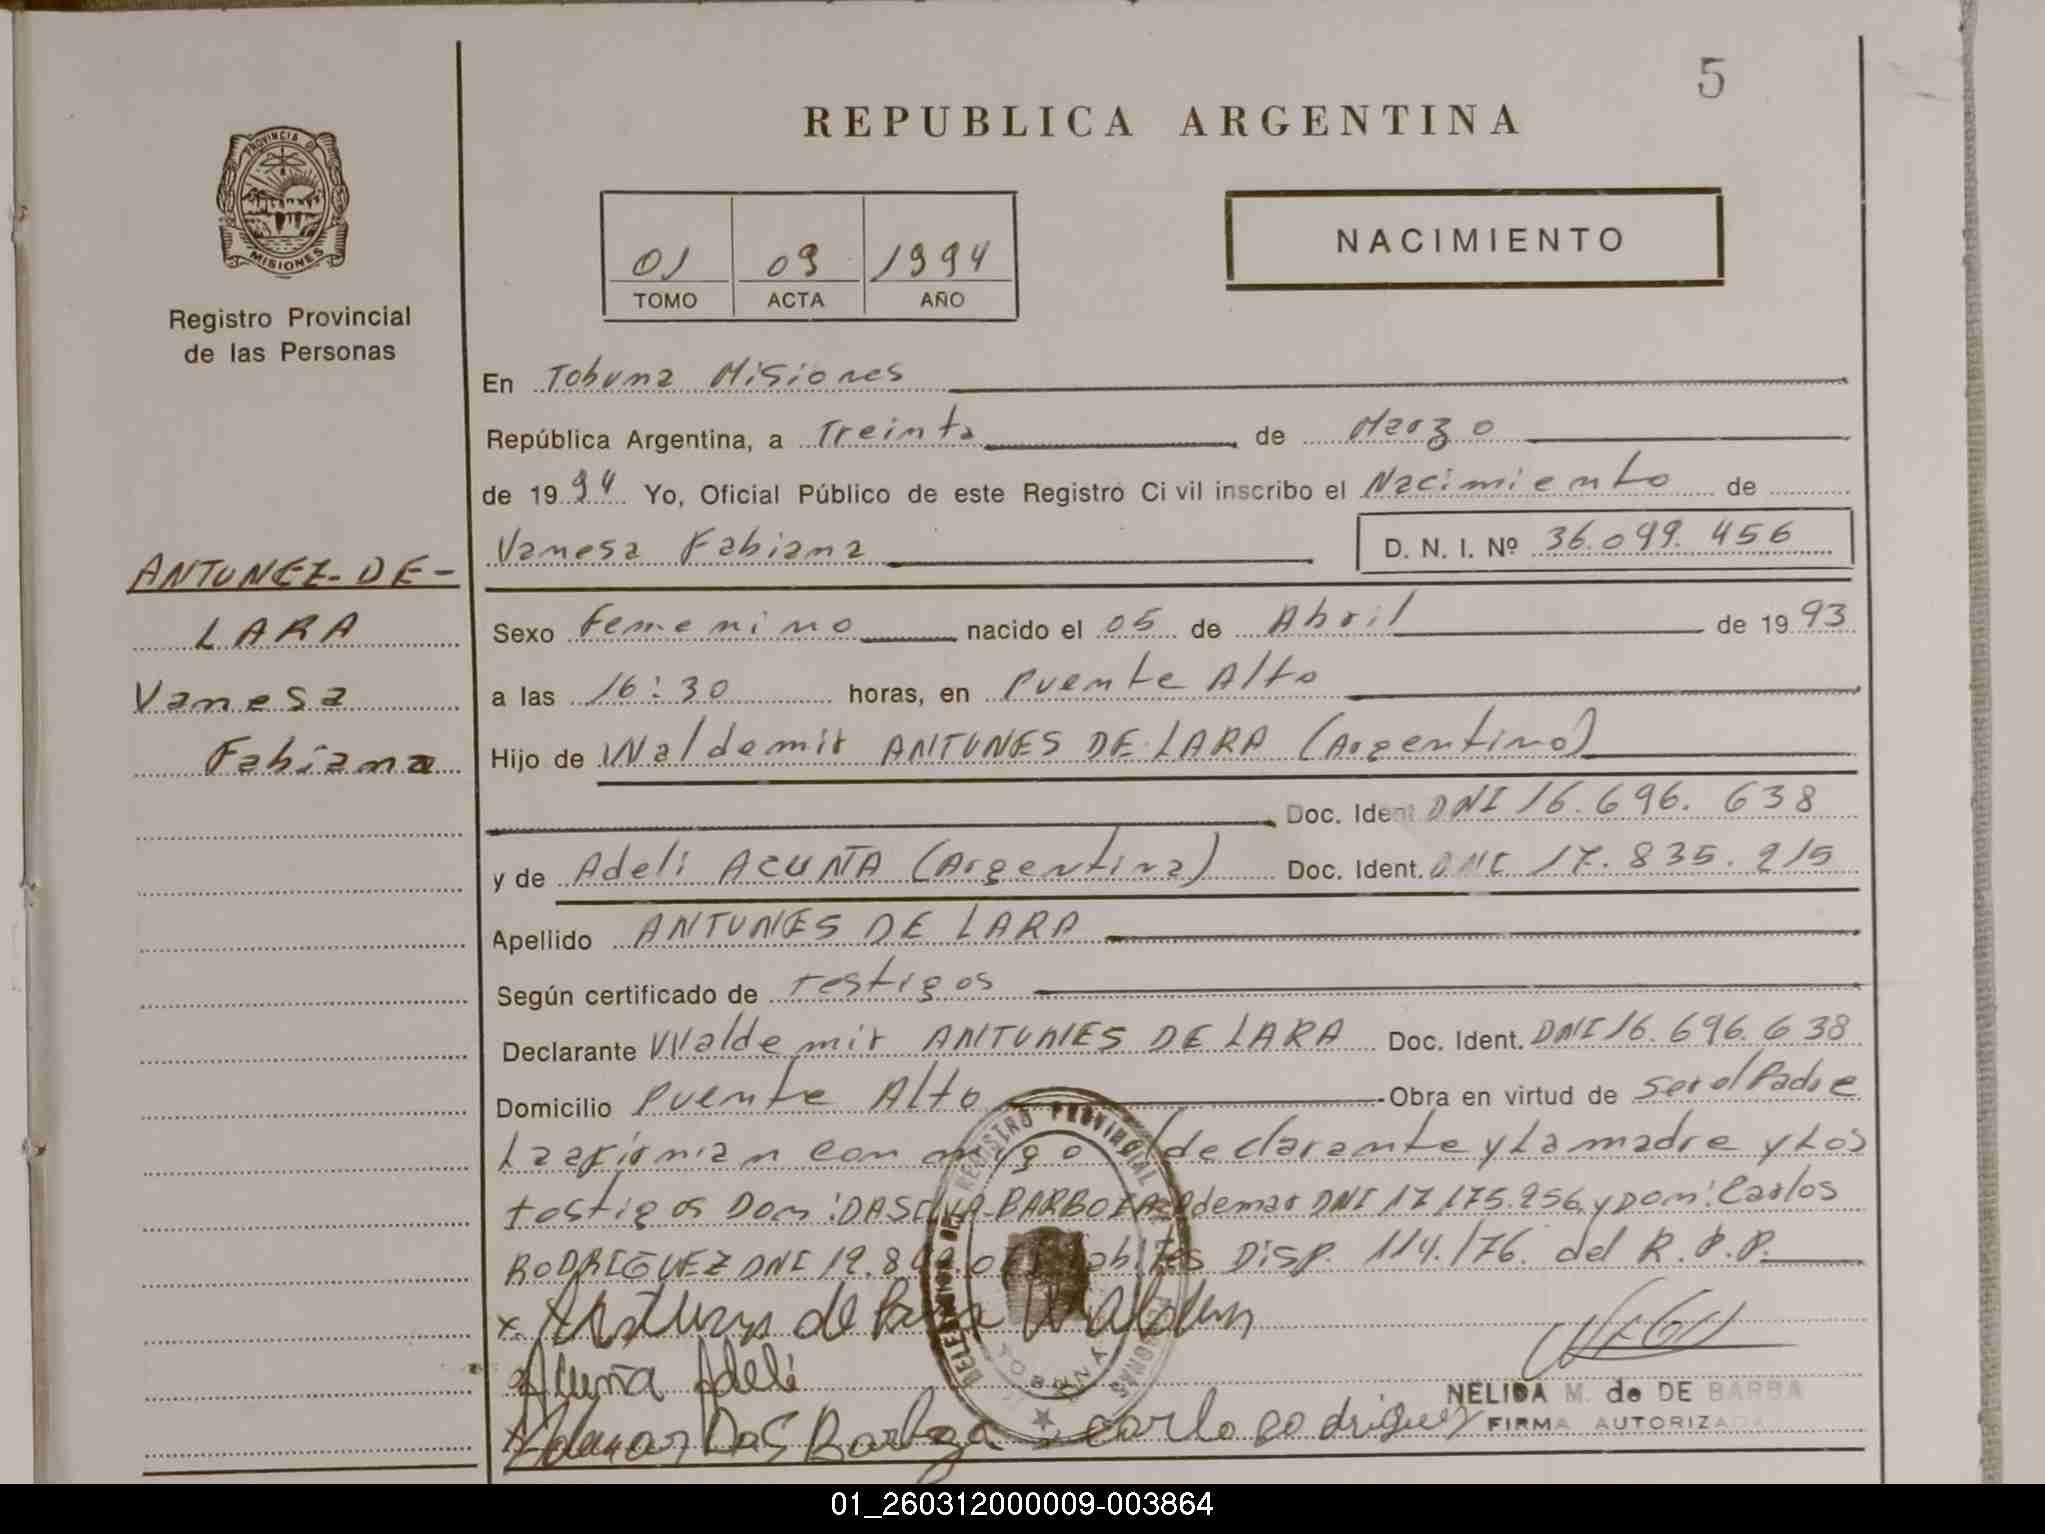 5
REPUBLICA ARGENTINA
PROVINCIA DE
MISIONES
Registro Provincial
de las Personas
01 09 1994
TOMO ACTA AÑO
NACIMIENTO
En Tobuna Misiones
República Argentina, a Treinta de Marzo
de 1994 Yo, Oficial Público de este Registro Civil inscribo el Nacimiento de
Vanesa Fabiana D. N. I. Nº 36.099.456
ANTUNEZ-DE-
LARA
Vanesa
Fabiana
Sexo Femenino nacido el 05 de Abril de 1993
a las 16:30 horas, en Puente Alto
Hijo de Waldemir ANTUNES DE LARA (Argentino)
Doc. Ident. DNI 16.696.638
y de Adeli ACUÑA (Argentina) Doc. Ident. DNI 17.835.215
Apellido ANTUNES DE LARA
Según certificado de Testigos
Declarante Waldemir ANTUNES DE LARA Doc. Ident. DNI 16.696.638
Domicilio Puente Alto Obra en virtud de ser el Padre
La afirman con migo declarante y La madre y Los
testigos Don: DASILVA BARBOZA Ademar DNI 17.175.256 y Don: Carlos
RODRIGUEZ DNI Disp. 114/76. del R.P.P.
REGISTRO PROVINCIAL
TOBUNA
Acuña Adeli
carlo Rodriguez
NELIDA M. de DE BARBA
FIRMA AUTORIZADA
01_260312000009-003864